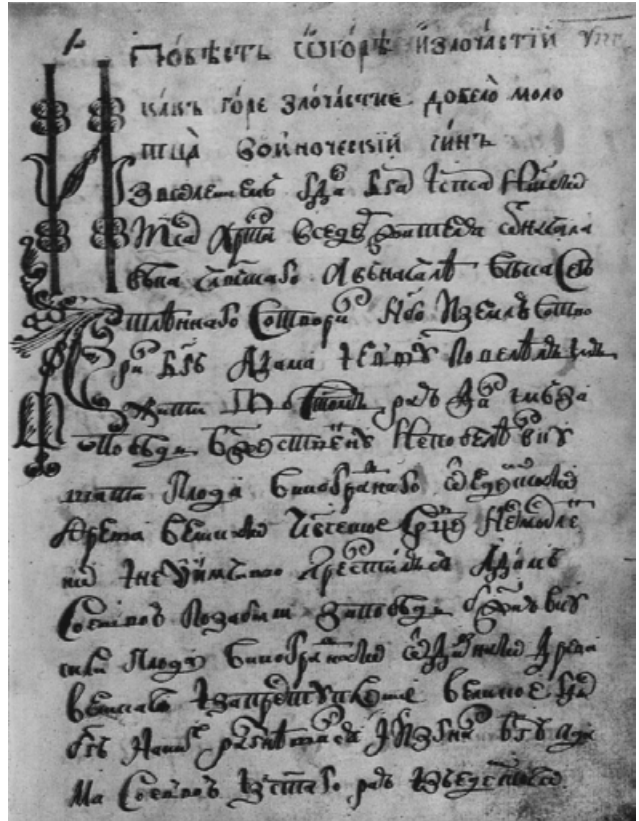 Повѣсть ѿ горѣ и злочастїи
какъ горе злочастие довело моло
тца во иноческїй чинъ
Изволениемъ гда бга і спса нашего
Іиса хрта вседержителя ѿ начала
вѣка
тлѣннаго сотвори небо и землю сотво
ри бгъ адама і еву повелѣлъ имъ
жити во святомъ раю далъ имъ за
повѣдь божественну не повелѣлъ вку
шати плода виноградного ѿ едемского
древа великаго сердце несмысле
но и неуимчиво прелстился адамъ
со еввою позабыли заповѣдь бжию вку
сили плода виноградного ѿ дивнаго древа
великаго и за преступление великое гдь
бгъ на нихъ разгневался и изгнал бгъ ада
ма со еввою из святаго раю из едемскаго